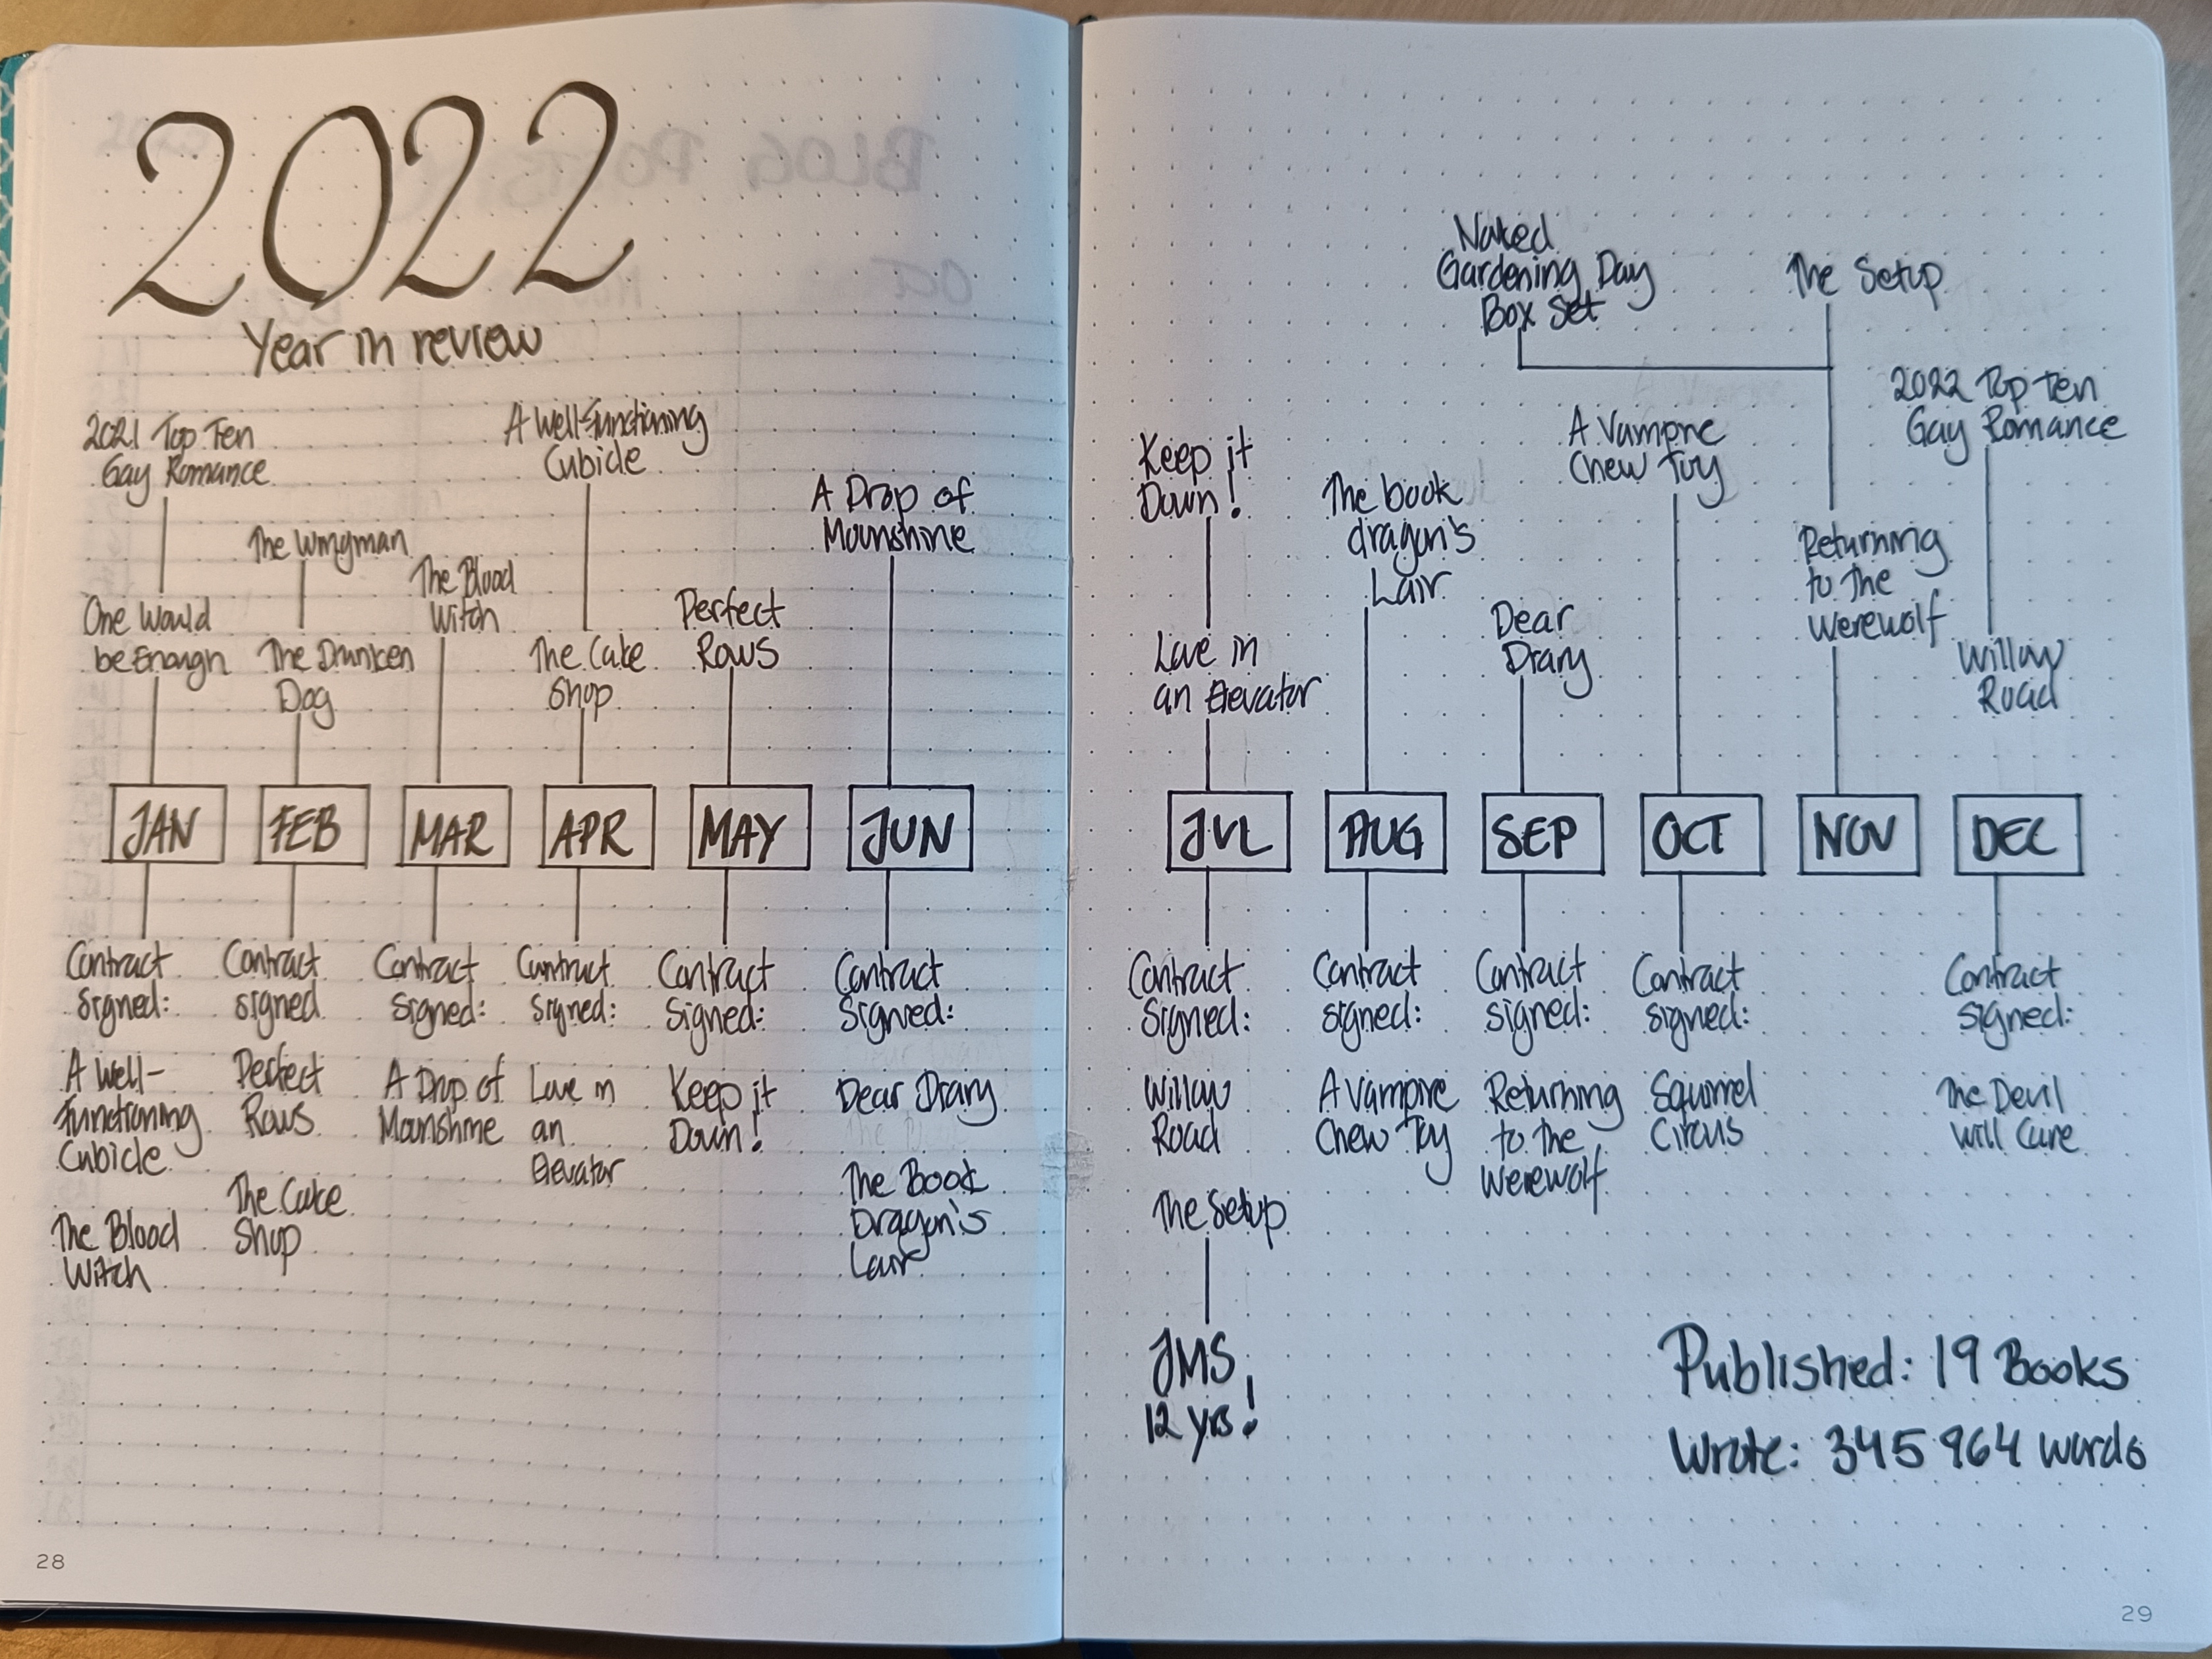 2022
Year in review
2021 Top Ten
Gay Romance
One Would
be Enough
The Wingman
The Drunken
Dog
The Blood
Witch
A Well-Functioning
Cubicle
The Cake
Shop
Perfect
Rows
A Drop of
Moonshine
JAN
FEB
MAR
APR
MAY
JUN
Contract
Signed:
A Well-
Functioning
Cubicle
The Blood
Witch
Contract
signed
Perfect
Rows
The Cake
Shop
Contract
Signed:
A Drop of
Moonshine
Contract
Signed:
Love in
an
Elevator
Contract
Signed:
Keep it
Down!
Contract
Signed:
Dear Diary
The Book
Dragon's
Lair
28
Keep it
Down!
Love in
an Elevator
The book
dragon's
Lair
Dear
Diary
A Vampire
Chew Toy
Naked
Gardening Day
Box Set
The Setup
Returning
to The
Werewolf
2022 Top Ten
Gay Romance
Willow
Road
JUL
AUG
SEP
OCT
NOV
DEC
Contract
Signed:
Willow
Road
The Setup
JMS
12 yrs!
Contract
signed:
A Vampire
Chew Toy
Contract
signed:
Returning
to The
Werewolf
Contract
signed:
Squirrel
Circus
Contract
signed:
The Devil
Will Care
Published: 19 Books
Wrote: 345 964 words
29